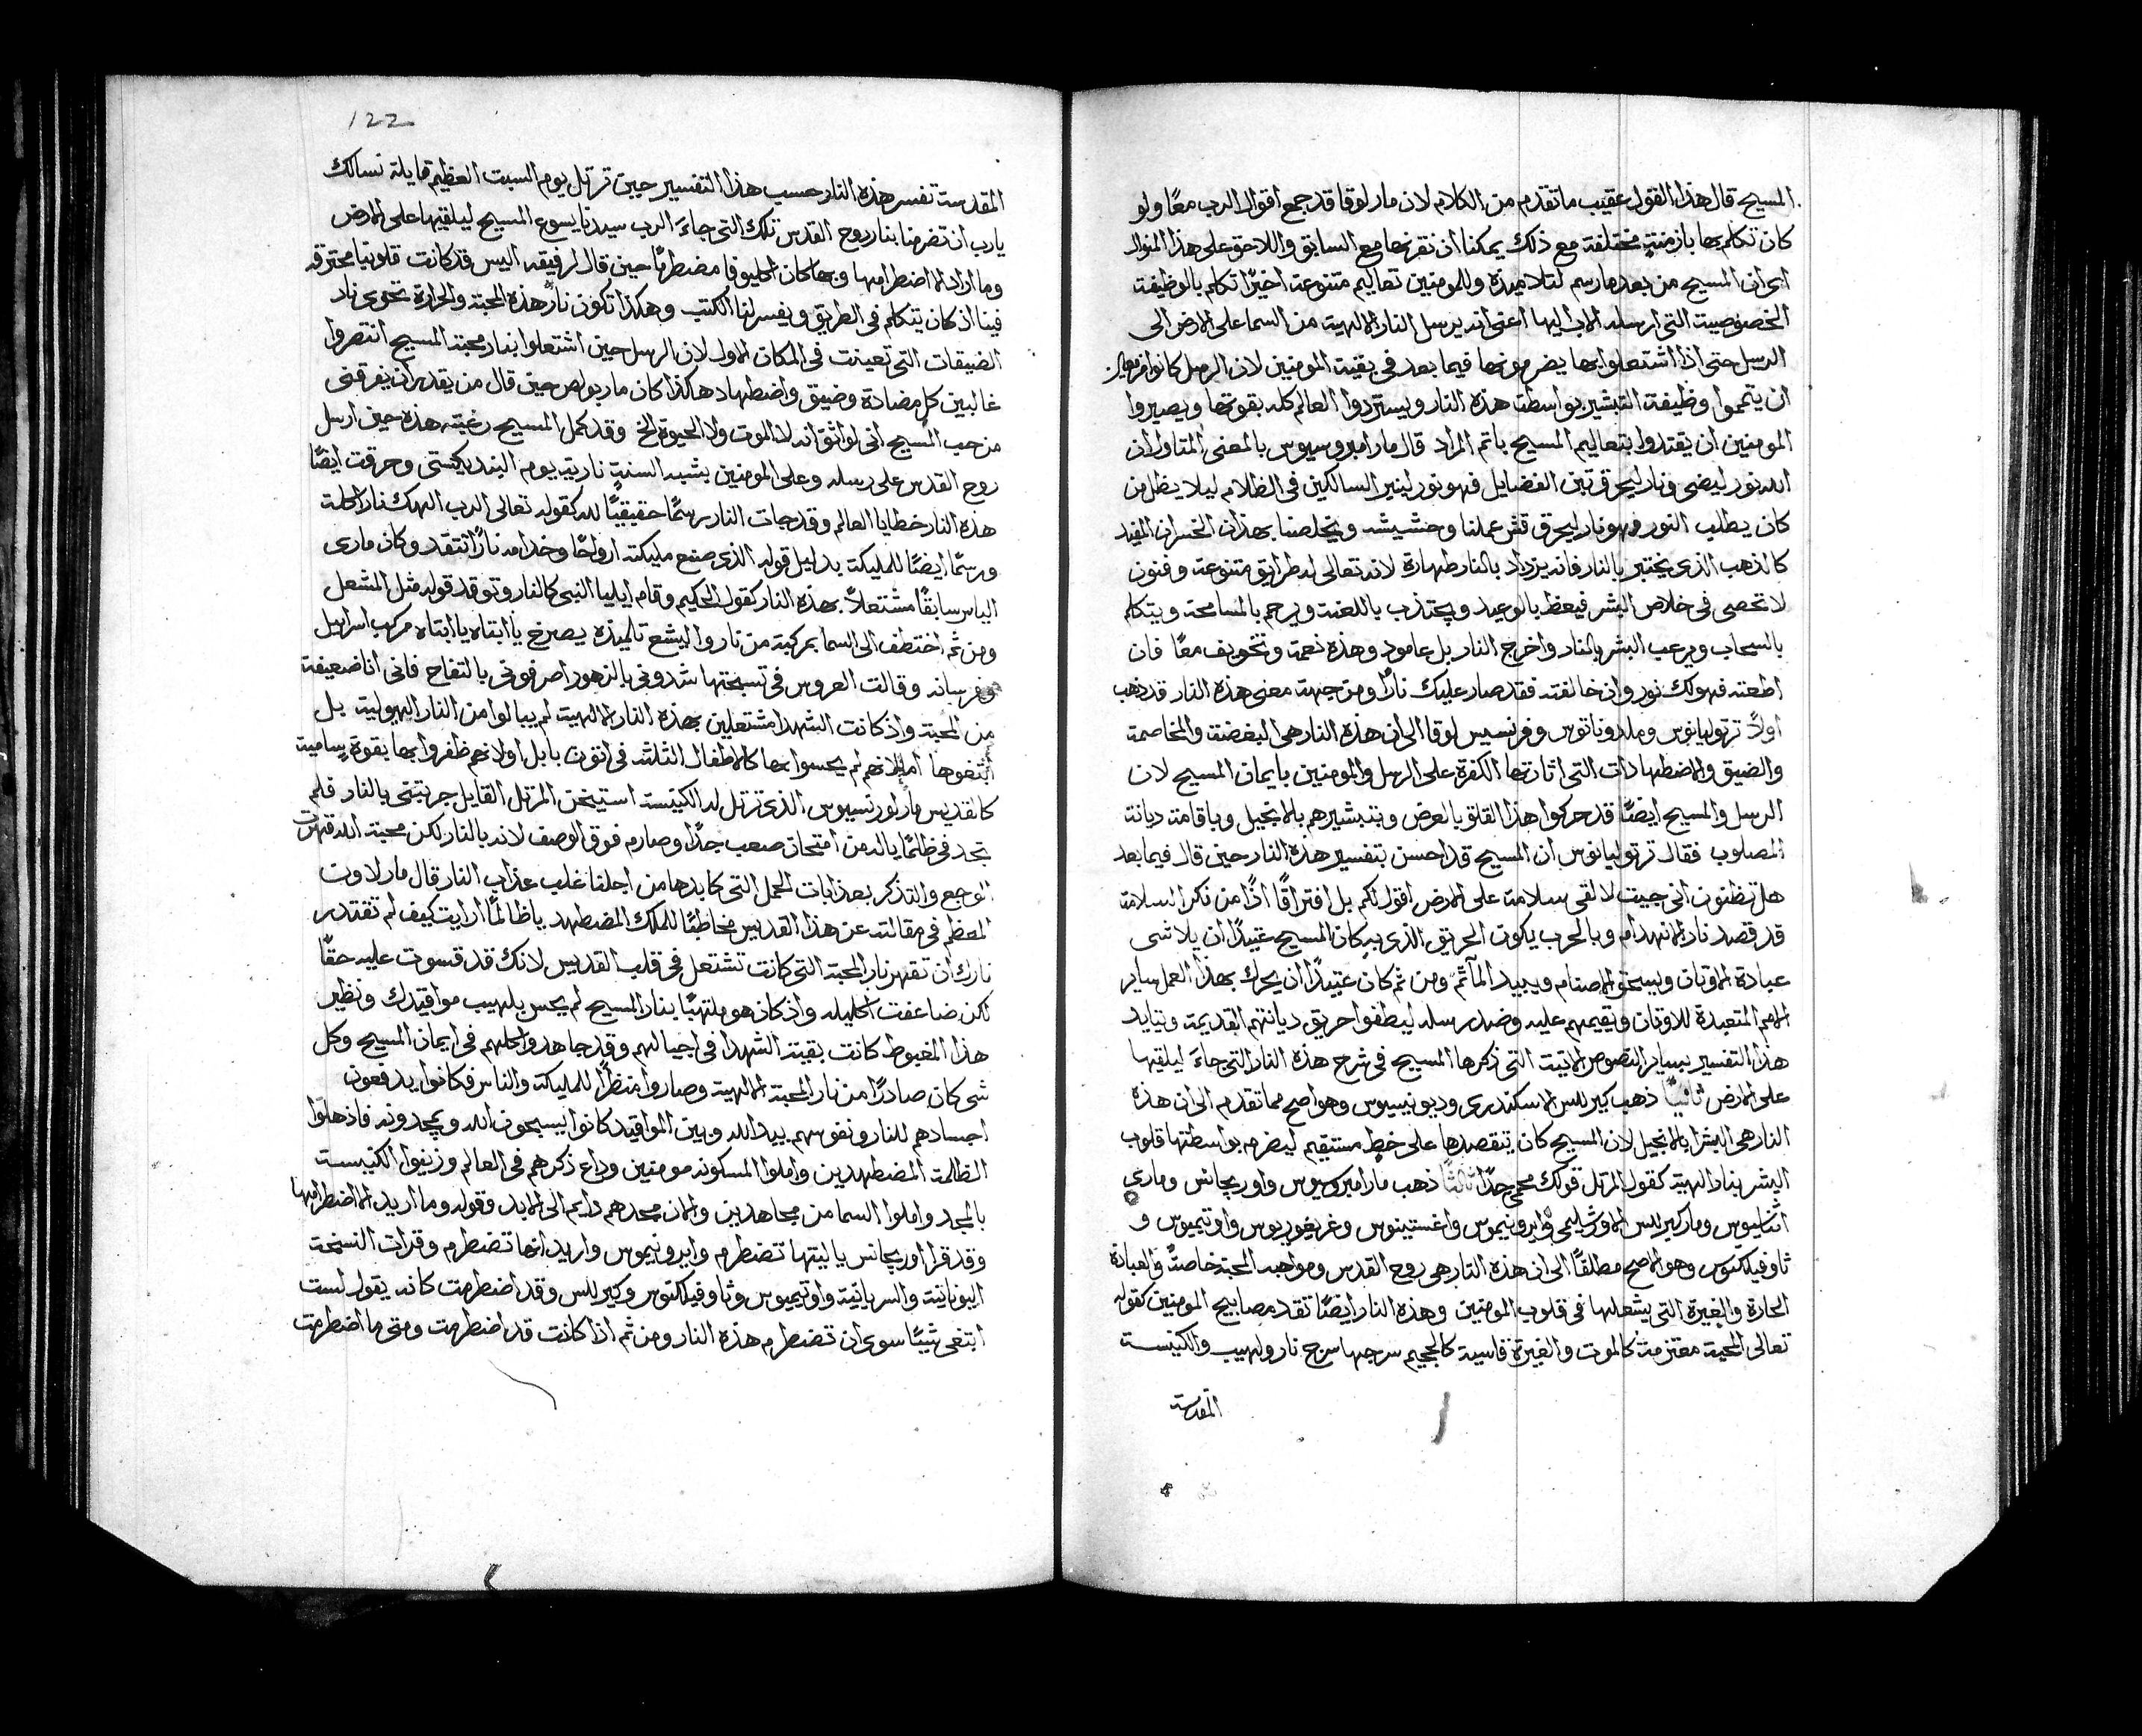 المسيح قال هذا القول عقيب ما تقدم من الكلام لان مار لوقا قد جمع اقوال الرب معًا ولو
كان تكلم بها بازمنةٍ مختلفة مع ذلك يمكننا ان نقرنها مع السابق واللاحق على هذا المنوال
اى ان المسيح من بعد ما رسم لتلاميذه وللمومنين تعاليم متنوعة اخيرًا تكلم بالوظيفة
الخصوصية التى ارسله الاب اليها اعنى انه يرسل النار الالهية من السما على الارض الى
الرسل حتى اذا اشتعلوا بها يضرمونها فيما بعد فى بقية المومنين لان الرسل كانوا
ان يتمموا وظيفة التبشير بواسطة هذه النار ويستردوا العالم كله بقوتها ويصيروا
المومنين ان يقتدوا بتعاليم المسيح باتم المراد قال مار امبروسيوس بالمعنى المتاول ان
الله نور ليضى ونار ليحرق تبن الفضايل فهو نور لينير السالكين فى الظلام ليلا يظل من
كان يطلب النور فهو نار ليحرق قش عملنا وحشيشه ويخلصنا بهذان الخسران المفيد
كالذهب الذى يختبر بالنار فانه يزداد بالنار طهارة لانه تعالى له طرايق متنوعة وفنون
لا تحصى فى خلاص البشر فيعظ بالوعيد ويجتذب باللعنة ويرحم بالمسامحة ويتكلم
بالسحاب ويرعب البشر بالنار واخرج النار بل عامود وهذه نعمة وتخويف معًا فان
اطعته فهو لك نور وان خالفته فقد صار عليك نارًا ومن جهة معنى هذه النار قد ذهب
اولاً ترتوليانوس وملدوناتوس وفرنسيس لوقا الى ان هذه النار هى البغضة والمخاصمة
والضيق والاضطهادات التى اثارتها الكفرة على الرسل والمومنين بايمان المسيح لان
الرسل والمسيح ايضًا قد حركوا هذا القلق بالعرض وبتبشيرهم بالانجيل وباقامة ديانة
المصلوب فقال ترتوليانوس ان المسيح قد احسن بتفسير هذه النار حين قال فيما بعد
هل تظنون انى جيت لالقى سلامة على الارض اقول لكم بل افتراقًا اذًا من نكر السلامة
قد قصد نار الانهدام وبالحرب يكون الحريق الذى به كان المسيح عتيدًا ان يلاشى
عبادة الاوثان ويسحق الاصنام ويبيد المآثم ومن ثم كان عتيدًا ان يحرك بهذا العمل ساير
الامم المتعبدة للاوثان وتقيمهم عليه وضد رسله ليطفوا حريق ديانتهم القديمة وتايد
هذا التفسير بساير النصوص الاتية التى ذكرها المسيح فى شرح هذه النار التى جاء ليلقيها
على الارض ثانيًا ذهب كيرللس الاسكندرى وديونيسيوس وهو اصح مما تقدم الى ان هذه
النار هى البشرا بالانجيل لان المسيح كان يتقصدها على خطٍ مستقيم ليضرم بواسطتها قلوب
البشر بنار الهية كقول المرتل قولك محمى جدًا ثالثًا ذهب مار امبروسيوس واوريجانس ومارى
اثناسيوس ومار كيرللس الاورشليمى وايرونيموس واغستينوس وغريغوريوس واوتيميوس و
ثاوفيلكتوس وهو الاصح مطلقًا الى ان هذه النار هى روح القدس ومواهبه المحبة خاصةً والعبادة
الحارة والغيرة التى يشعلها فى قلوب المومنين وهذه النار ايضًا تقد مصابيح المومنين كقوله
تعالى المحبة معتزمة كالموت والغيرة قاسية كالجحيم سرجها سرج نار ولهيب والكنيسة
المقدسة
122
المقدسة تفسر هذه النار حسب هذا التفسير حين ترتل يوم السبت العظيم قايلة نسالك
يا رب ان تضرمنا بنار روح القدس تلك التى جاءَ الرب سيدنا يسوع المسيح ليلقيها على الارض
وما اراد الا اضطرامها وبها كان اكليوفا مضطرمًا حين قال لرفيقه اليس قد كانت قلوبنا محترقة
فينا اذ كان يتكلم فى الطريق ويفسر لنا الكتب وهكذا تكون نار هذه المحبة والحرارة تحوى نار
الضيقات التى تعينت فى المكان الاول لان الرسل حين اشتعلوا بنار محبة المسيح انتصروا
غالبين كل مضادة وضيق واضطهاد هكذا كان مار بولص حين قال من يقدر ان يفرقنى
من حب المسيح انى لواثق انه لا الموت ولا الحيوة الخ وقد كمل المسيح رغبته هذه حين ارسل
روح القدس على رسله وعلى المومنين بشبه السنةٍ نارية يوم البنديكستى وحرقت ايضًا
هذه النار خطايا العالم وقد جات النار رسمًا حقيقيًا لله كقوله تعالى الرب الهك نار اكلة
ورسمًا ايضًا للمليكة بدليل قوله الذى صنع مليكته ارواحًا وخدامه نارًا تتقد وكان مارى
الياس سابقًا مشتعلاً بهذه النار كقول الحكيم وقام ايليا النبى كالنار وتوقد قوله مثل المشعل
ومن ثم اختطف الى السما بمركبة من نار واليشع تلميذه يصرخ يا ابتاه يا ابتاه مركب اسراييل
وفرسانه وقالت العروس فى تسبحتها شدونى بالزهور اصرفونى بالتفاح فانى انا ضعيفة
من المحبة واذ كانت الشهدا مشتعلين بهذه النار الالهية لم يبالوا من النار الهيولية بل
ابتغوها اما لانهم لم يحسوا بها كالاطفال الثلثة فى اتون بابل او لانهم ظفروا بها بقوة سامية
كالقديس مار لورنسيوس الذى ترتل له الكنيسة استيخن المرتل القايل جربتنى بالنار فلم
تجد فى ظلمًا يا له من امتحان صعب جدًا وصارم فوق الوصف لانه بالنار لكن محبة الله قهرت
الوجع والتذكر بعذابات الحمل التى كابدها من اجلنا غلب عذاب النار قال مار لاون
المعظم فى مقالته عن هذا القديس مخاطبًا للملك المضطهد يا ظالمًا ارايت كيف لم تقتدر
نارك ان تقهر نار المحبة التى كانت تشتعل فى قلب القديس لانك قد قسوت عليه حقًا
لكن ضاعفت اكليله واذ كان هو ملتهبًا بنار المسيح لم يحس بلهيب مواقيدك ونظير
هذا المغبوط كانت بقية الشهدا فى اجيالهم وقد جاهدوا كلهم فى ايمان المسيح وكل
شى كان صادرًا من نار المحبة الالهية وصاروا منظرًا للمليكة والناس فكانوا يدفعون
اجسادهم للنار ونفوسهم بيد الله وبين المواقيد كانوا يسبحون الله ويمجدونه فاذهلوا
الظالمة المضطهدين واملوا المسكونه مومنين وذاع ذكرهم فى العالم وزينوا الكنيسة
بالمجد واملوا السما من مجاهدين والان مجدهم دايم الى الابد وقوله وما اريد الا اضطرامها
وقد قرا اوريجانس يا ليتها تضطرم وايرونيموس واريد انها تضطرم وقرات النسخة
اليونانية والسريانية واوتيميوس وثاوفيلكتوس وكيرللس وقد اضطرمت كانه يقول لست
ابتغى شيًا سوى ان تضطرم هذه النار ومن ثم اذا كانت قد اضطرمت ومتى ما اضطرمت